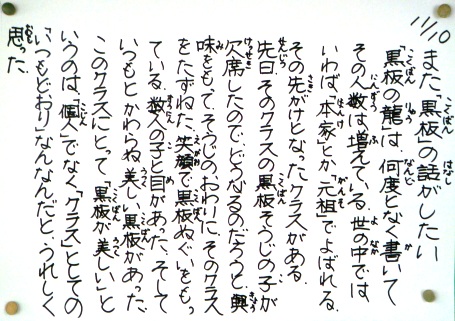 11/10
また、「黒板」の話がしたい
「黒板の龍」は、何度となく書いて
その人数は増えている。世の中では、
いわば、「本家」とか「元祖」でよばれる、
その先がけとなったクラスがある。
先日、そのクラスの黒板そうじの子が
欠席したので、どうなるのだろうと、興
味をもって、そうじのおわりに、そのクラス
をたずねた。笑顔で黒板ぬぐいをもっ
ている、数人の子と目があった。そして
いつもとかわらぬ、美しい黒板があった。
このクラスにとって、「黒板が美しい」と
いうのは、「個人」でなく「クラス」としての
「いつもどおり」なんなんだと、うれしく
思った。